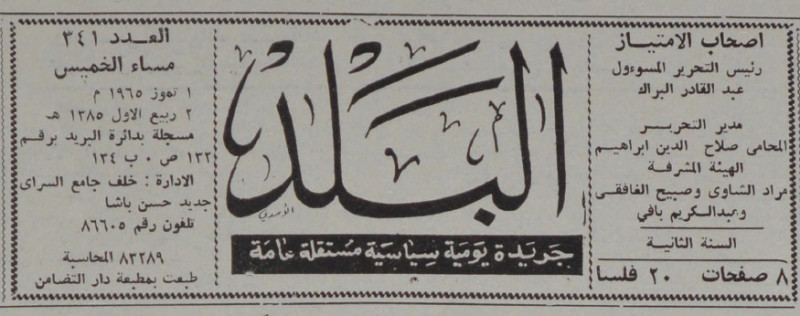 اصحاب الامتياز
رئيس التحرير المسوءول
عبد القادر البراك
مدير التحرير
المحامى صلاح الدين ابراهيم
الهيئة المشرفة
مراد الشاوى وصبيح الغافقى
وعبدالكريم بافي
السنة الثانية
٨ صفحات ٢٠ فلسا
البلد
جريدة يومية سياسية مستقلة عامة
العدد ٣٤١
مساء الخميس
١ تموز ١٩٦٥ م
٢ ربيع الاول ١٣٨٥ هـ
مسجلة بدائرة البريد برقم
١٣٢ ص ٠ ب ١٣٤
الادارة : خلف جامع السراى
جديد حسن باشا
تلفون رقم ٨٦٦٠٥
٨٣٢٨٩ المحاسبة
طبعت بمطبعة دار التضامن